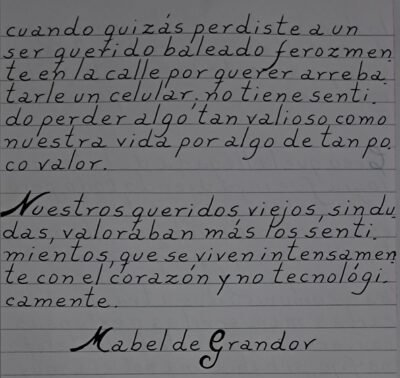 cuando quizás perdiste a un
ser querido baleado ferozmen.
te en la calle por querer arreba.
tarle un celular, no tiene senti.
do perder algo tan valioso como
nuestra vida por algo de tan po.
co valor.
Nuestros queridos viejos, sin du.
das, valoraban más los senti.
mientos, que se viven intensamen.
te con el corazón y no tecnológi.
camente.
Mabel de Grandov